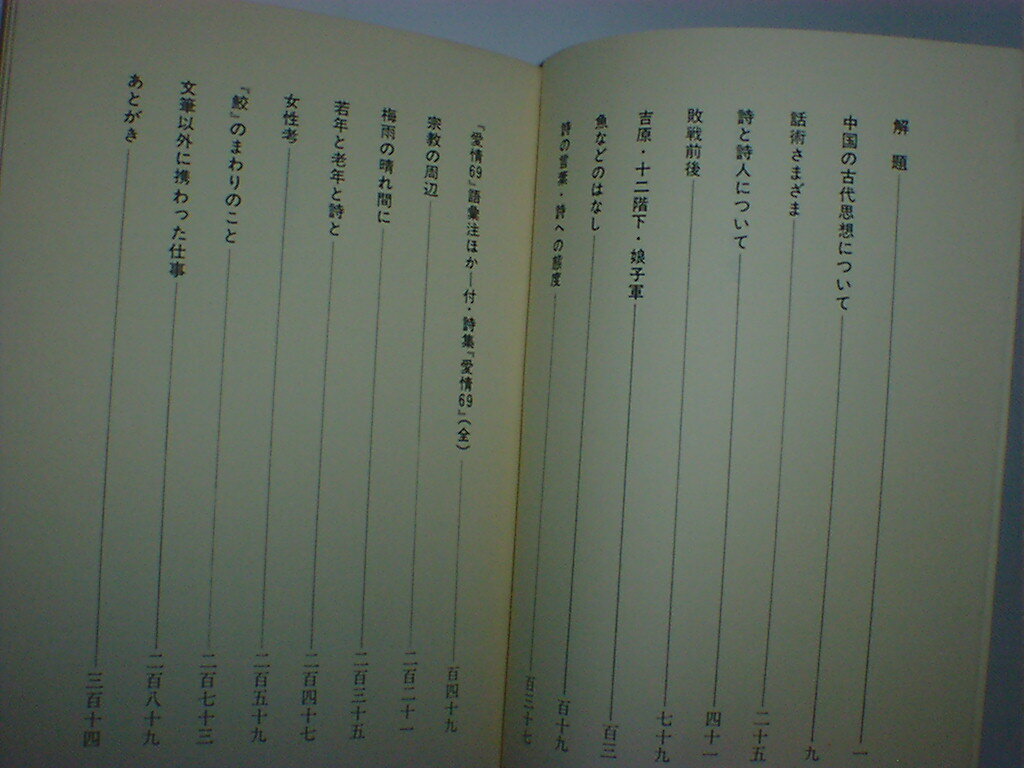 解題 一
中国の古代思想について 九
話術さまざま 二十五
詩と詩人について 四十一
敗戦前後 七十九
吉原・十二階下・娘子軍 百三
魚などのはなし 百十九
詩の言葉・詩への態度 百三十七
『愛情69』語彙注ほか―付・詩集『愛情69』(全) 百四十九
宗教の周辺 二百二十一
梅雨の晴れ間に 二百三十五
若年と老年と詩と 二百四十七
女性考 二百五十九
『鮫』のまわりのこと 二百七十三
文筆以外に携わった仕事 二百八十九
あとがき 三百十四